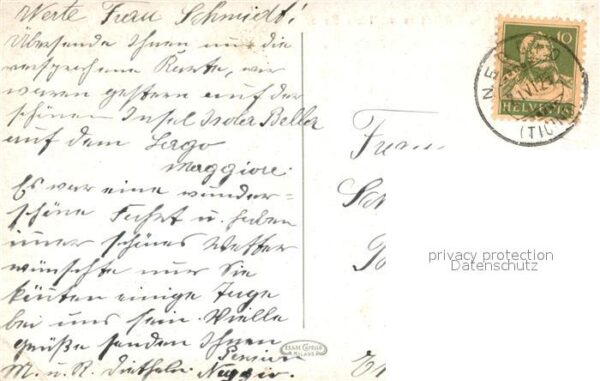 Werte Frau Schmidt!
Übersende Ihnen nur die
versprochene Karte, wir
waren gestern auf der
schönen Insel Isola Bella
auf dem Lago
Maggiore.
Es war eine wunder=
schöne Fahrt u. haben
imer schönes Wetter
wünschte nur Sie
könten einige Tage
bei uns sein. Vielle
Grüße senden Ihnen
M. u. R. Diethelm Pension
Neggio.
10
HELVETIA
NEGGIO
(TICINO)
Frau
privacy protection
Datenschutz
MILANO